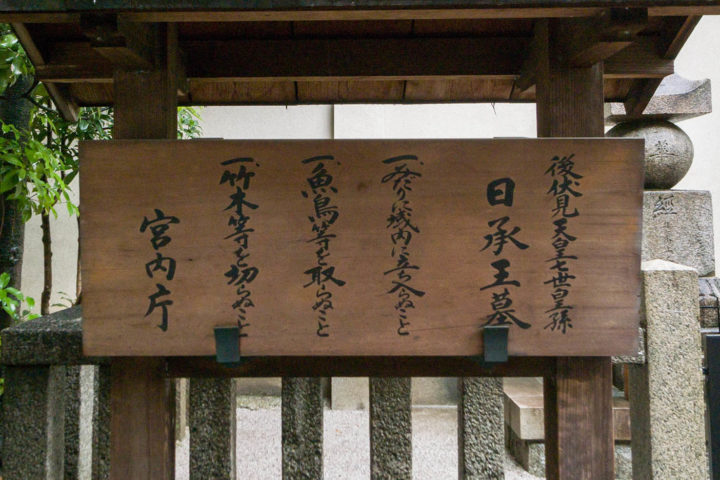 後伏見天皇七世皇孫
日承王墓
一、みだりに域内に立ち入らぬこと
一、魚鳥等を取らぬこと
一、竹木等を切らぬこと
宮内庁